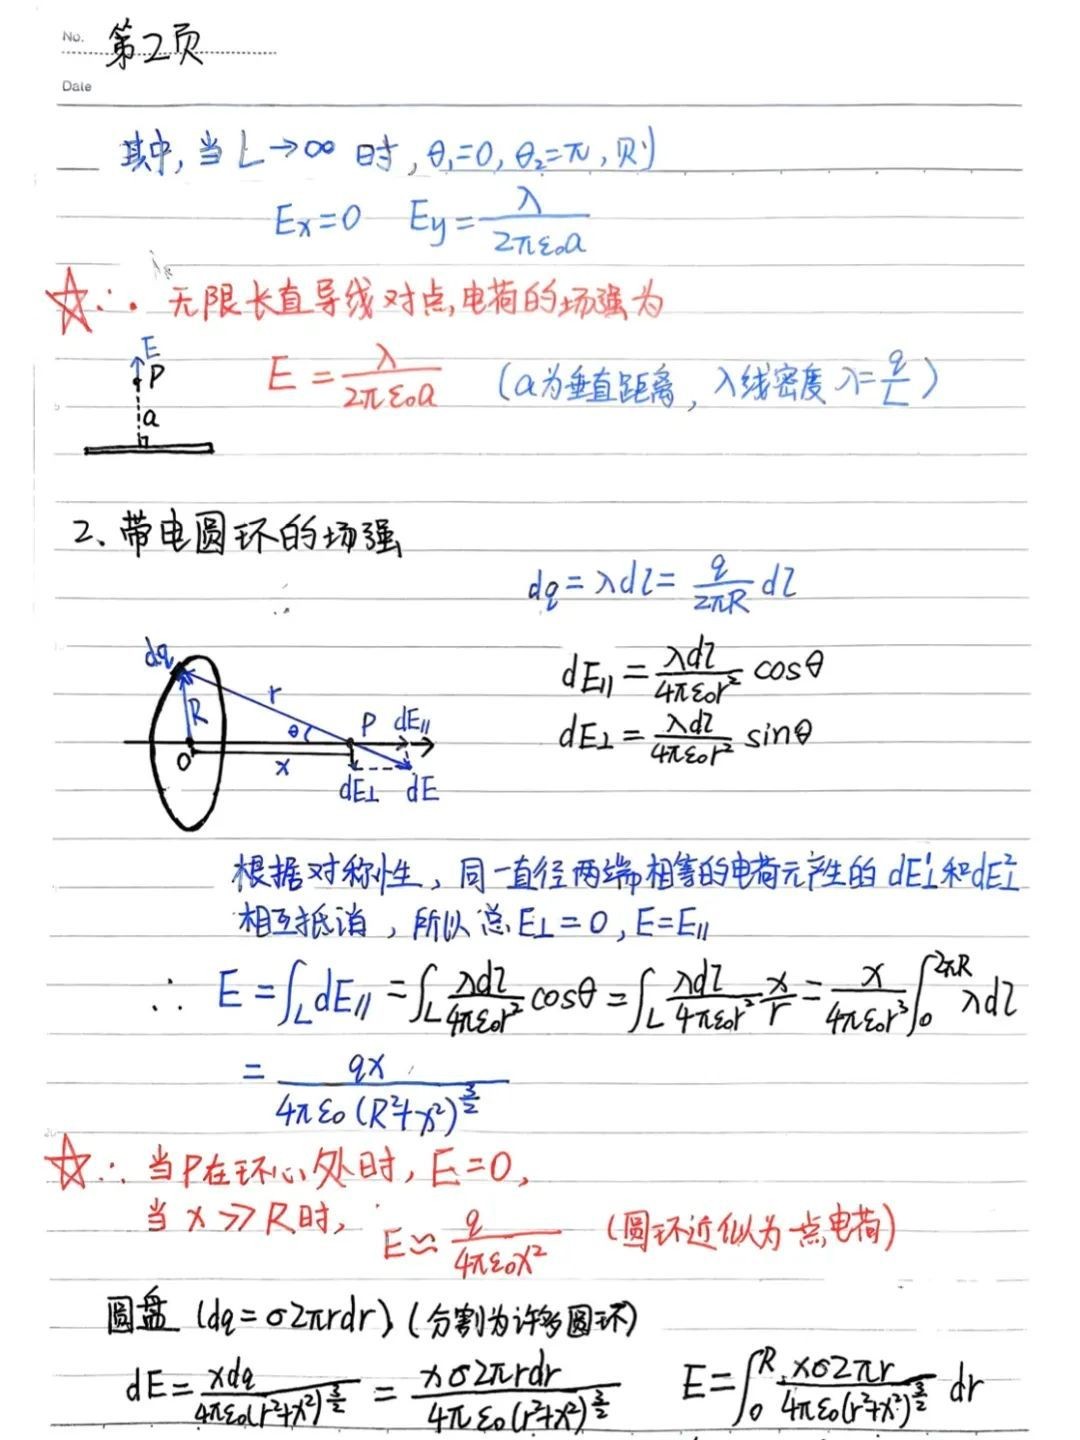 No. 第2页
Date
其中,当 L→∞ 时,θ₁=0,θ₂=π,则
Ex=0 Ey=λ/2πε₀a
☆∴. 无限长直导线对点电荷的场强为
E
P
a
E=λ/2πε₀a (a为垂直距离, λ线密度 λ=q/L)
2、带电圆环的场强
dq=λdl=q/2πR dl
dq
R
r
θ
P
dE∥
O
x
dE⊥
dE
dE∥=λdl/4πε₀r² cosθ
dE⊥=λdl/4πε₀r² sinθ
根据对称性,同一直径两端相等的电荷元产生的 dE⊥¹和dE⊥²
相互抵消,所以总E⊥=0,E=E∥
∴ E=∫_L dE∥=∫_L λdl/4πε₀r² cosθ=∫_L λdl/4πε₀r² x/r=x/4πε₀r³ ∫₀^2πR λdl
=qx/4πε₀(R²+x²)^3/2
☆∴ 当P在环心处时,E=0,
当 x≫R时, E≈q/4πε₀x² (圆环近似为一点电荷)
圆盘 (dq=σ2πrdr) (分割为许多圆环)
dE=xdq/4πε₀(r²+x²)^3/2 = xσ2πrdr/4πε₀(r²+x²)^3/2 E=∫₀^R xσ2πr/4πε₀(r²+x²)^3/2 dr